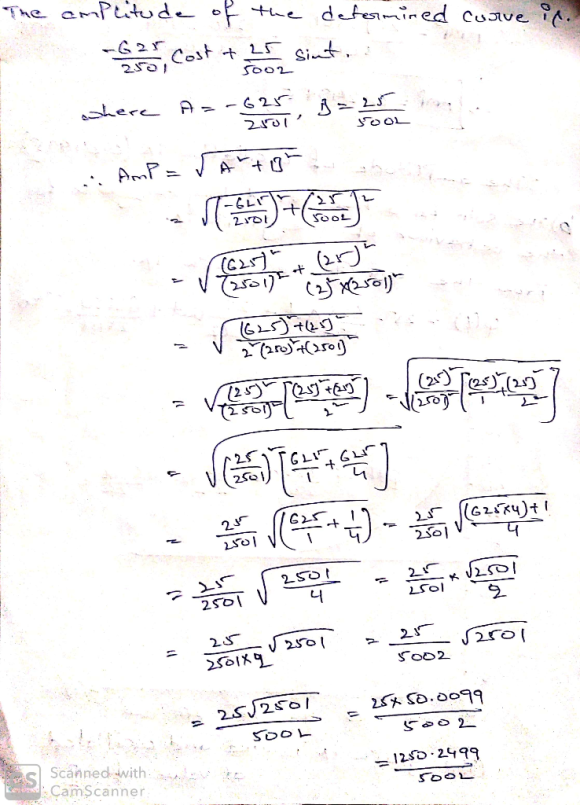 The amplitude of the determined curve is.
-625/2501 Cost + 25/5002 Sint.
where A = -625/2501, B = 25/5002
∴ Amp = √(A² + B²)
= √((-625/2501)² + (25/5002)²)
= √((625)²/(2501)² + (25)²/((2)² × (2501)²))
= √(((625)² + (25)²)/(2² (250)² + (2501)²))
= √((25)²/(2501)² [((25)² + (25)²)/2²]) = √((25)²/(2501)² [(25)²/1 + (25)²/2²])
= √((25/2501)² [625/1 + 625/4])
= 25/2501 √(625/1 + 1/4) = 25/2501 √(((625×4)+1)/4)
= 25/2501 √(2501/4) = 25/2501 × √2501/2
= 25/(2501×2) √2501 = 25/5002 √2501
= 25√2501/5002 = 25×50.0099/5002
= 1250.2499/5002
CS Scanned with
CamScanner